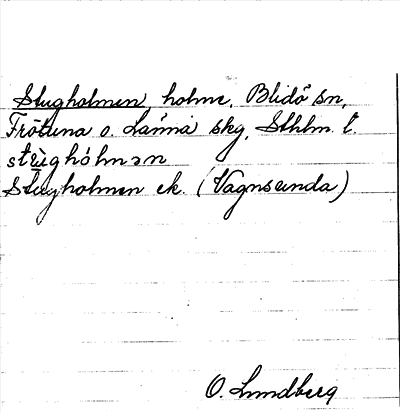 Stugholmen, holme, Blidö sn,
Frötuna o. Länna skg, Sthlm. l.
stẹ̀ghòlmən
Stugholmen ek. (Vagnsunda)
O. Lundberg